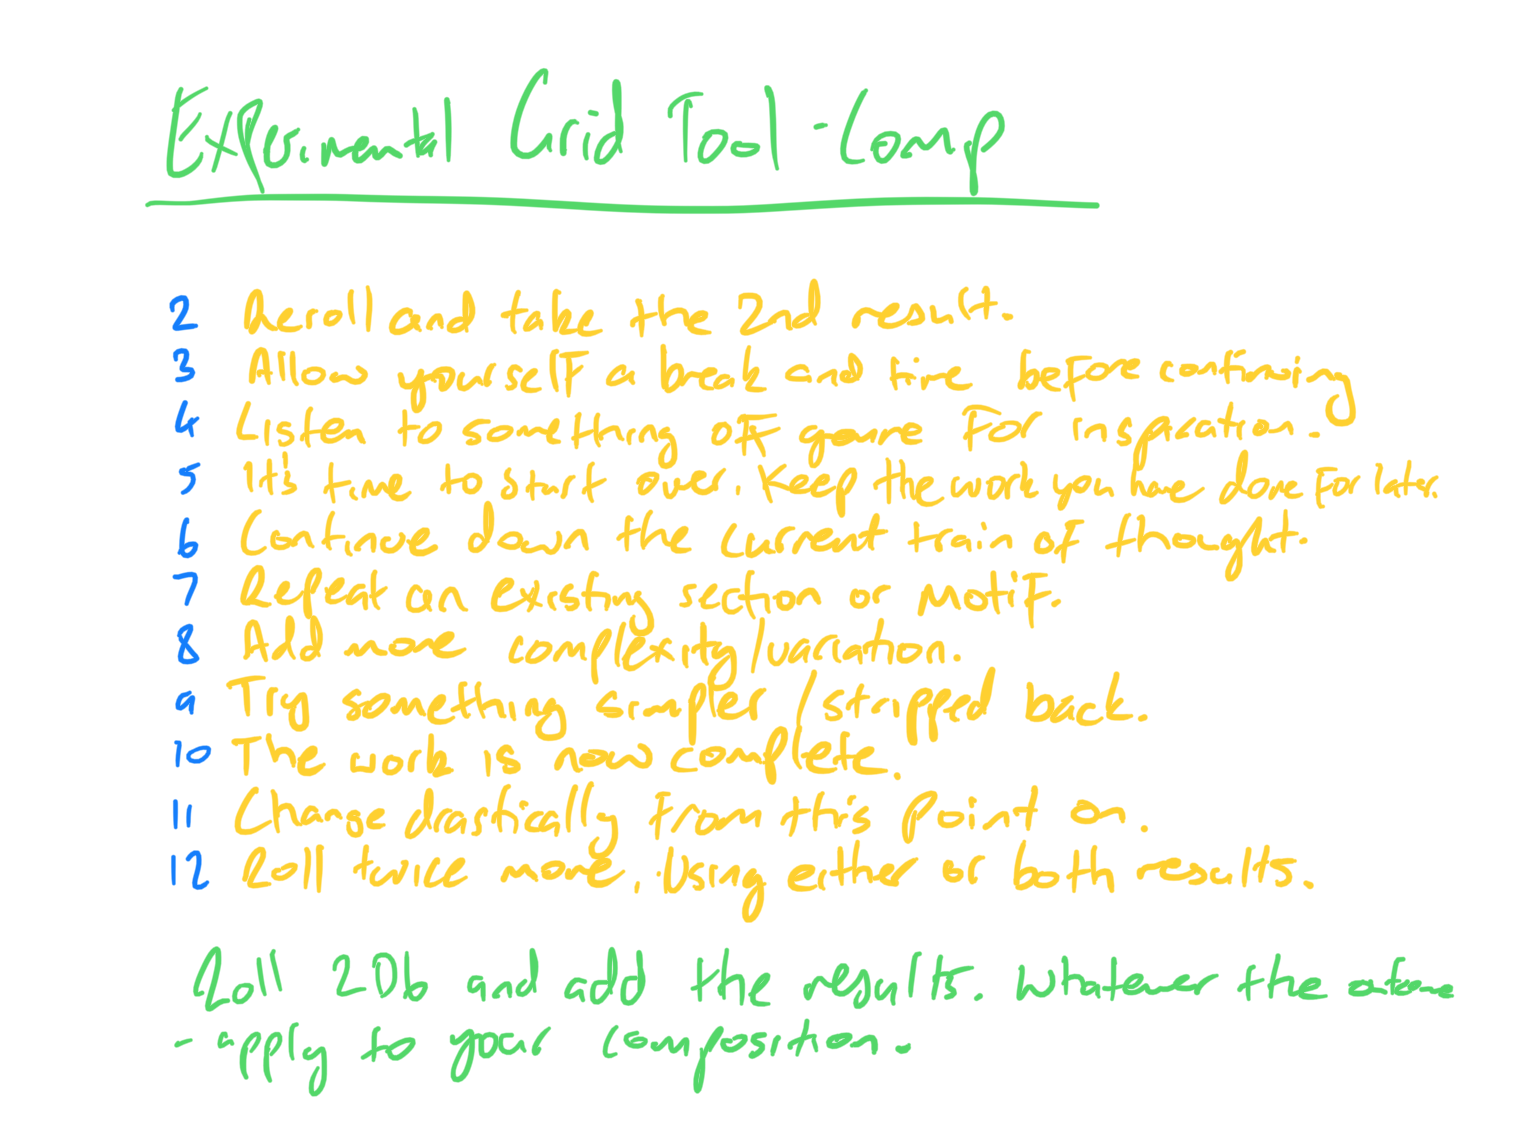 Experimental Grid Tool - Comp
2 Reroll and take the 2nd result.
3 Allow yourself a break and time before continuing
4 Listen to something off genre for inspiration.
5 It's time to start over. Keep the work you have done for later.
6 Continue down the current train of thought.
7 Repeat an existing section or motif.
8 Add more complexity/variation.
9 Try something simpler/stripped back.
10 The work is now complete.
11 Change drastically from this point on.
12 Roll twice more. Using either or both results.
Roll 2D6 and add the results. Whatever the outcome
- apply to your composition.